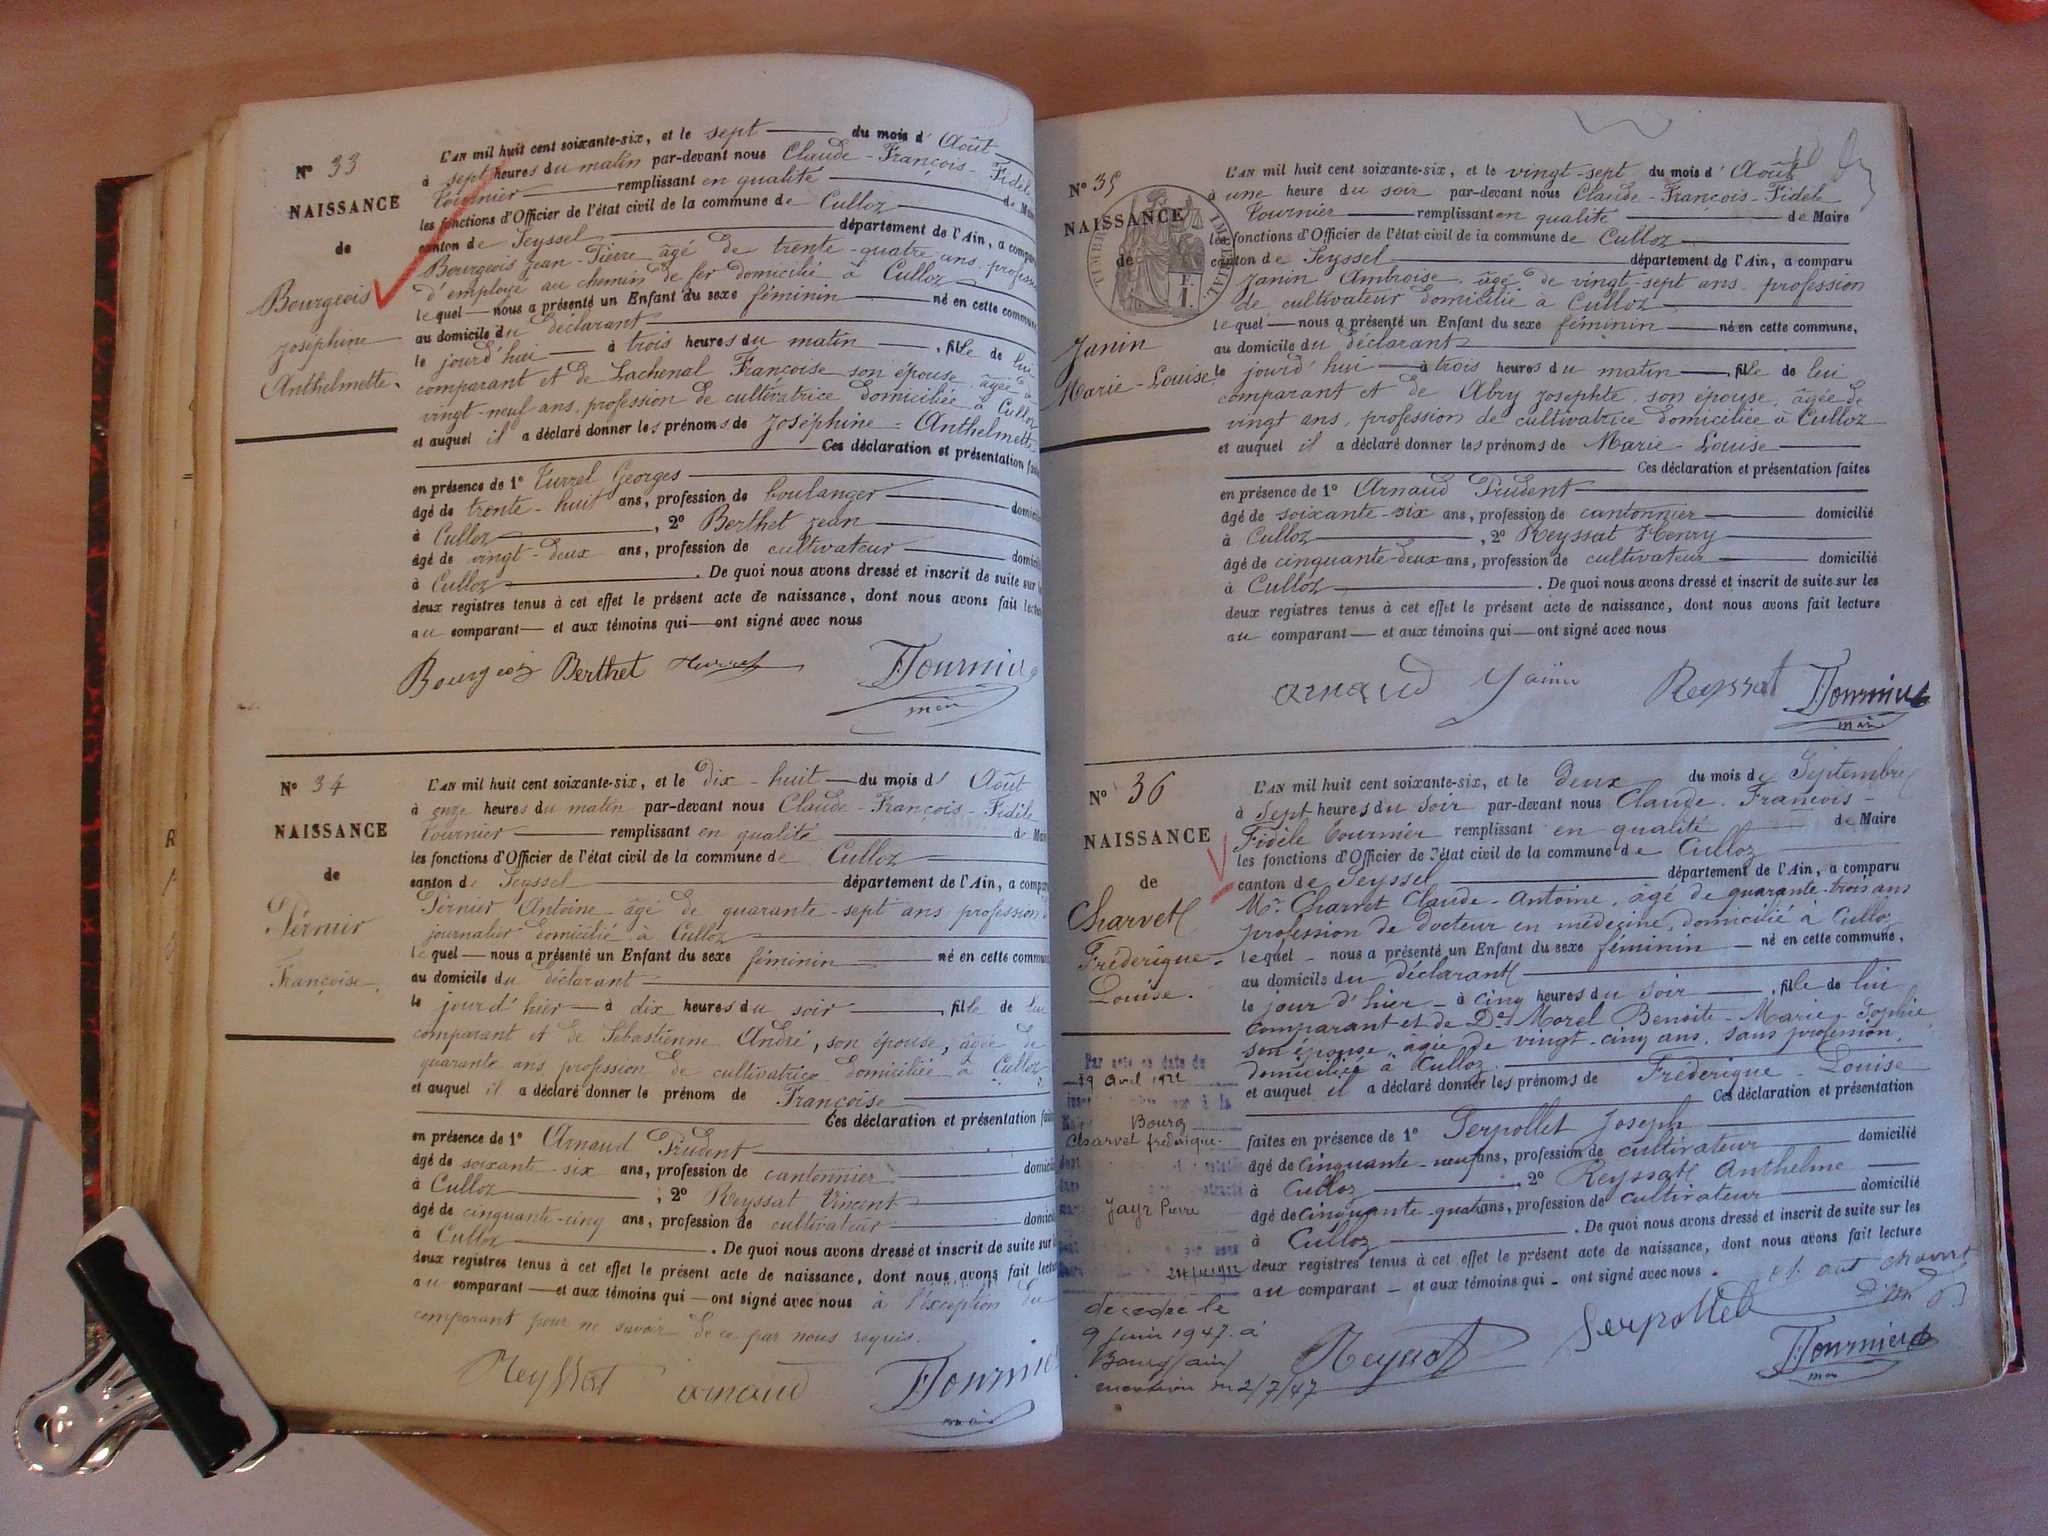 N° 33
NAISSANCE
de
Bourgeois
Joséphine
Anthelmette.
L'AN mil huit cent soixante-six, et le sept du mois d'Août
à sept heures du matin par-devant nous Claude-François-Fidèle
Tournier remplissant en qualité de Maire
les fonctions d'Officier de l'état civil de la commune de Culloz
canton de Seyssel département de l'Ain, a comparu
Bourgeois Jean-Pierre âgé de trente-quatre ans, profession
d'employé au chemin de fer domicilié à Culloz
lequel nous a présenté un Enfant du sexe féminin né en cette commune
au domicile du déclarant
le jourd'hui à trois heures du matin, fille de lui
comparant et de Lachenal Françoise son épouse, âgée de
vingt-neuf ans, profession de cultivatrice domiciliée à Culloz
et auquel il a déclaré donner les prénoms de Joséphine-Anthelmette
Ces déclaration et présentation faites
en présence de 1° Turrel Georges
âgé de trente-huit ans, profession de boulanger domicilié
à Culloz, 2° Berthet Jean
âgé de vingt-deux ans, profession de cultivateur domicilié
à Culloz. De quoi nous avons dressé et inscrit de suite sur les
deux registres tenus à cet effet le présent acte de naissance, dont nous avons fait lecture
au comparant et aux témoins qui ont signé avec nous
Bourgeois Berthet Turrel F Tournier
maire
N° 34
NAISSANCE
de
Pernier
Françoise.
L'AN mil huit cent soixante-six, et le dix-huit du mois d'Août
à onze heures du matin par-devant nous Claude-François-Fidèle
Tournier remplissant en qualité de Maire
les fonctions d'Officier de l'état civil de la commune de Culloz
canton de Seyssel département de l'Ain, a comparu
Pernier Antoine âgé de quarante-sept ans profession de
journalier domicilié à Culloz
lequel nous a présenté un Enfant du sexe féminin né en cette commune
au domicile du déclarant
le jour d'hier à dix heures du soir, fille de lui
comparant et de Sébastienne André, son épouse, âgée de
quarante ans profession de cultivatrice domiciliée à Culloz
et auquel il a déclaré donner le prénom de Françoise
Ces déclaration et présentation faites
en présence de 1° Arnaud Prudent
âgé de soixante-six ans, profession de cantonnier domicilié
à Culloz; 2° Reyssat Vincent
âgé de cinquante-cinq ans, profession de cultivateur domicilié
à Culloz. De quoi nous avons dressé et inscrit de suite sur les
deux registres tenus à cet effet le présent acte de naissance, dont nous avons fait lecture
au comparant et aux témoins qui ont signé avec nous à l'exception du
comparant pour ne savoir de ce par nous requis.
Reyssat arnaud F Tournier
maire
N° 35
NAISSANCE
de
TIMBRE IMPERIAL
1 F.
Janin
Marie-Louise.
L'AN mil huit cent soixante-six, et le vingt-sept du mois d'Août
à une heure du soir par-devant nous Claude-François-Fidèle
Tournier remplissant en qualité de Maire
les fonctions d'Officier de l'état civil de la commune de Culloz
canton de Seyssel département de l'Ain, a comparu
Janin Ambroise, âgé de vingt-sept ans, profession
de cultivateur domicilié à Culloz
lequel nous a présenté un Enfant du sexe féminin né en cette commune,
au domicile du déclarant
le jourd'hui à trois heures du matin, fille de lui
comparant et de Abry Josephte, son épouse, âgée de
vingt ans, profession de cultivatrice domiciliée à Culloz
et auquel il a déclaré donner les prénoms de Marie-Louise
Ces déclaration et présentation faites
en présence de 1° Arnaud Prudent
âgé de soixante-six ans, profession de cantonnier domicilié
à Culloz, 2° Reyssat Henry
âgé de cinquante-deux ans, profession de cultivateur domicilié
à Culloz. De quoi nous avons dressé et inscrit de suite sur les
deux registres tenus à cet effet le présent acte de naissance, dont nous avons fait lecture
au comparant et aux témoins qui ont signé avec nous
arnaud Janin Reyssat F Tournier
maire
N° 36
NAISSANCE
de
Charvet
Fréderique-
Louise.
Par acte en date du
19 avril 1922
à la
Bourg
Charvet frédérique
Jayr Pierre
décédée le
9 juin 1947 à
Bourg (ain)
mention du 2/7/47
L'AN mil huit cent soixante-six, et le deux du mois de Septembre
à sept heures du soir par-devant nous Claude-François-
Fidèle Tournier remplissant en qualité de Maire
les fonctions d'Officier de l'état civil de la commune de Culloz
canton de Seyssel département de l'Ain, a comparu
Mr. Charvet Claude-Antoine, âgé de quarante-trois ans
profession de docteur en médecine, domicilié à Culloz
lequel nous a présenté un Enfant du sexe féminin né en cette commune,
au domicile du déclarant
le jour d'hier à cinq heures du soir, fille de lui
comparant et de De Morel Benoite-Marie-Sophie
son épouse, agée de vingt-cinq ans, sans profession,
domiciliée à Culloz
et auquel il a déclaré donner les prénoms de Fréderique-Louise
Ces déclaration et présentation
faites en présence de 1° Serpollet Joseph
âgé de cinquante-neuf ans, profession de cultivateur domicilié
à Culloz, 2° Reyssat Anthelme
âgé de cinquante-quatre ans, profession de cultivateur domicilié
à Culloz. De quoi nous avons dressé et inscrit de suite sur les
deux registres tenus à cet effet le présent acte de naissance, dont nous avons fait lecture
au comparant et aux témoins qui ont signé avec nous.
Reyssat Serpollet charvet
F Tournier
maire